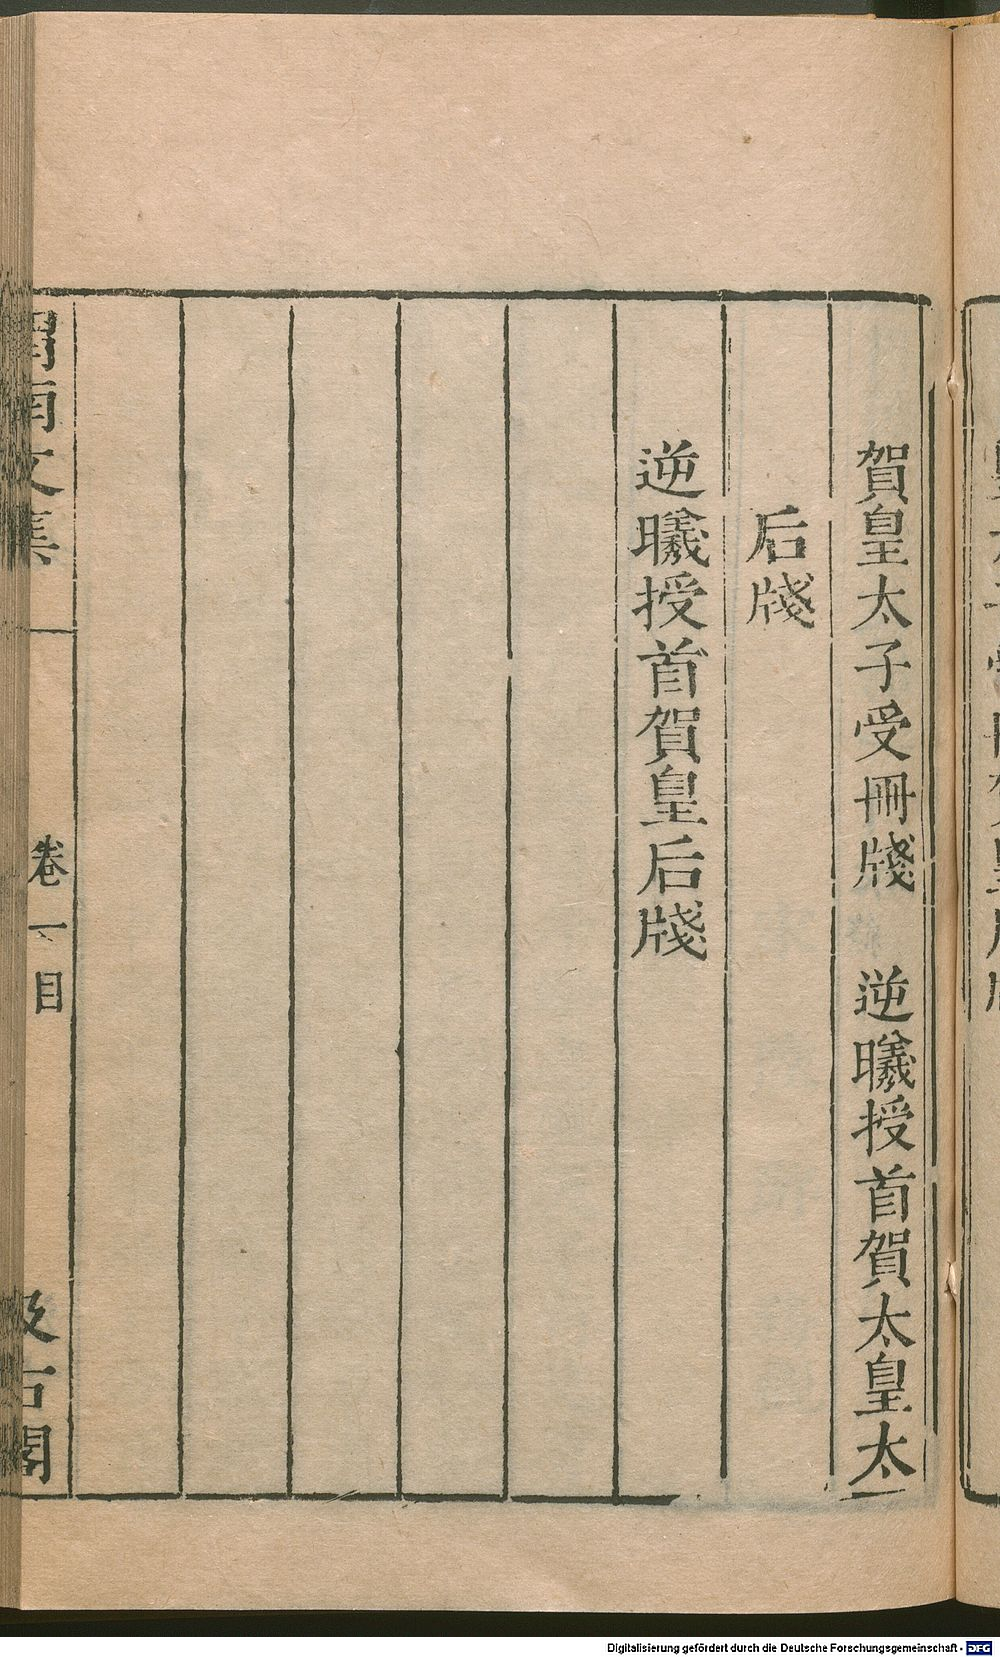 賀皇太子受冊牋　逆曦授首賀太皇太
后牋
逆曦授首賀皇后牋
渭南文集
卷一目
汲古閣
Digitalisierung gefördert durch die Deutsche Forschungsgemeinschaft - DFG